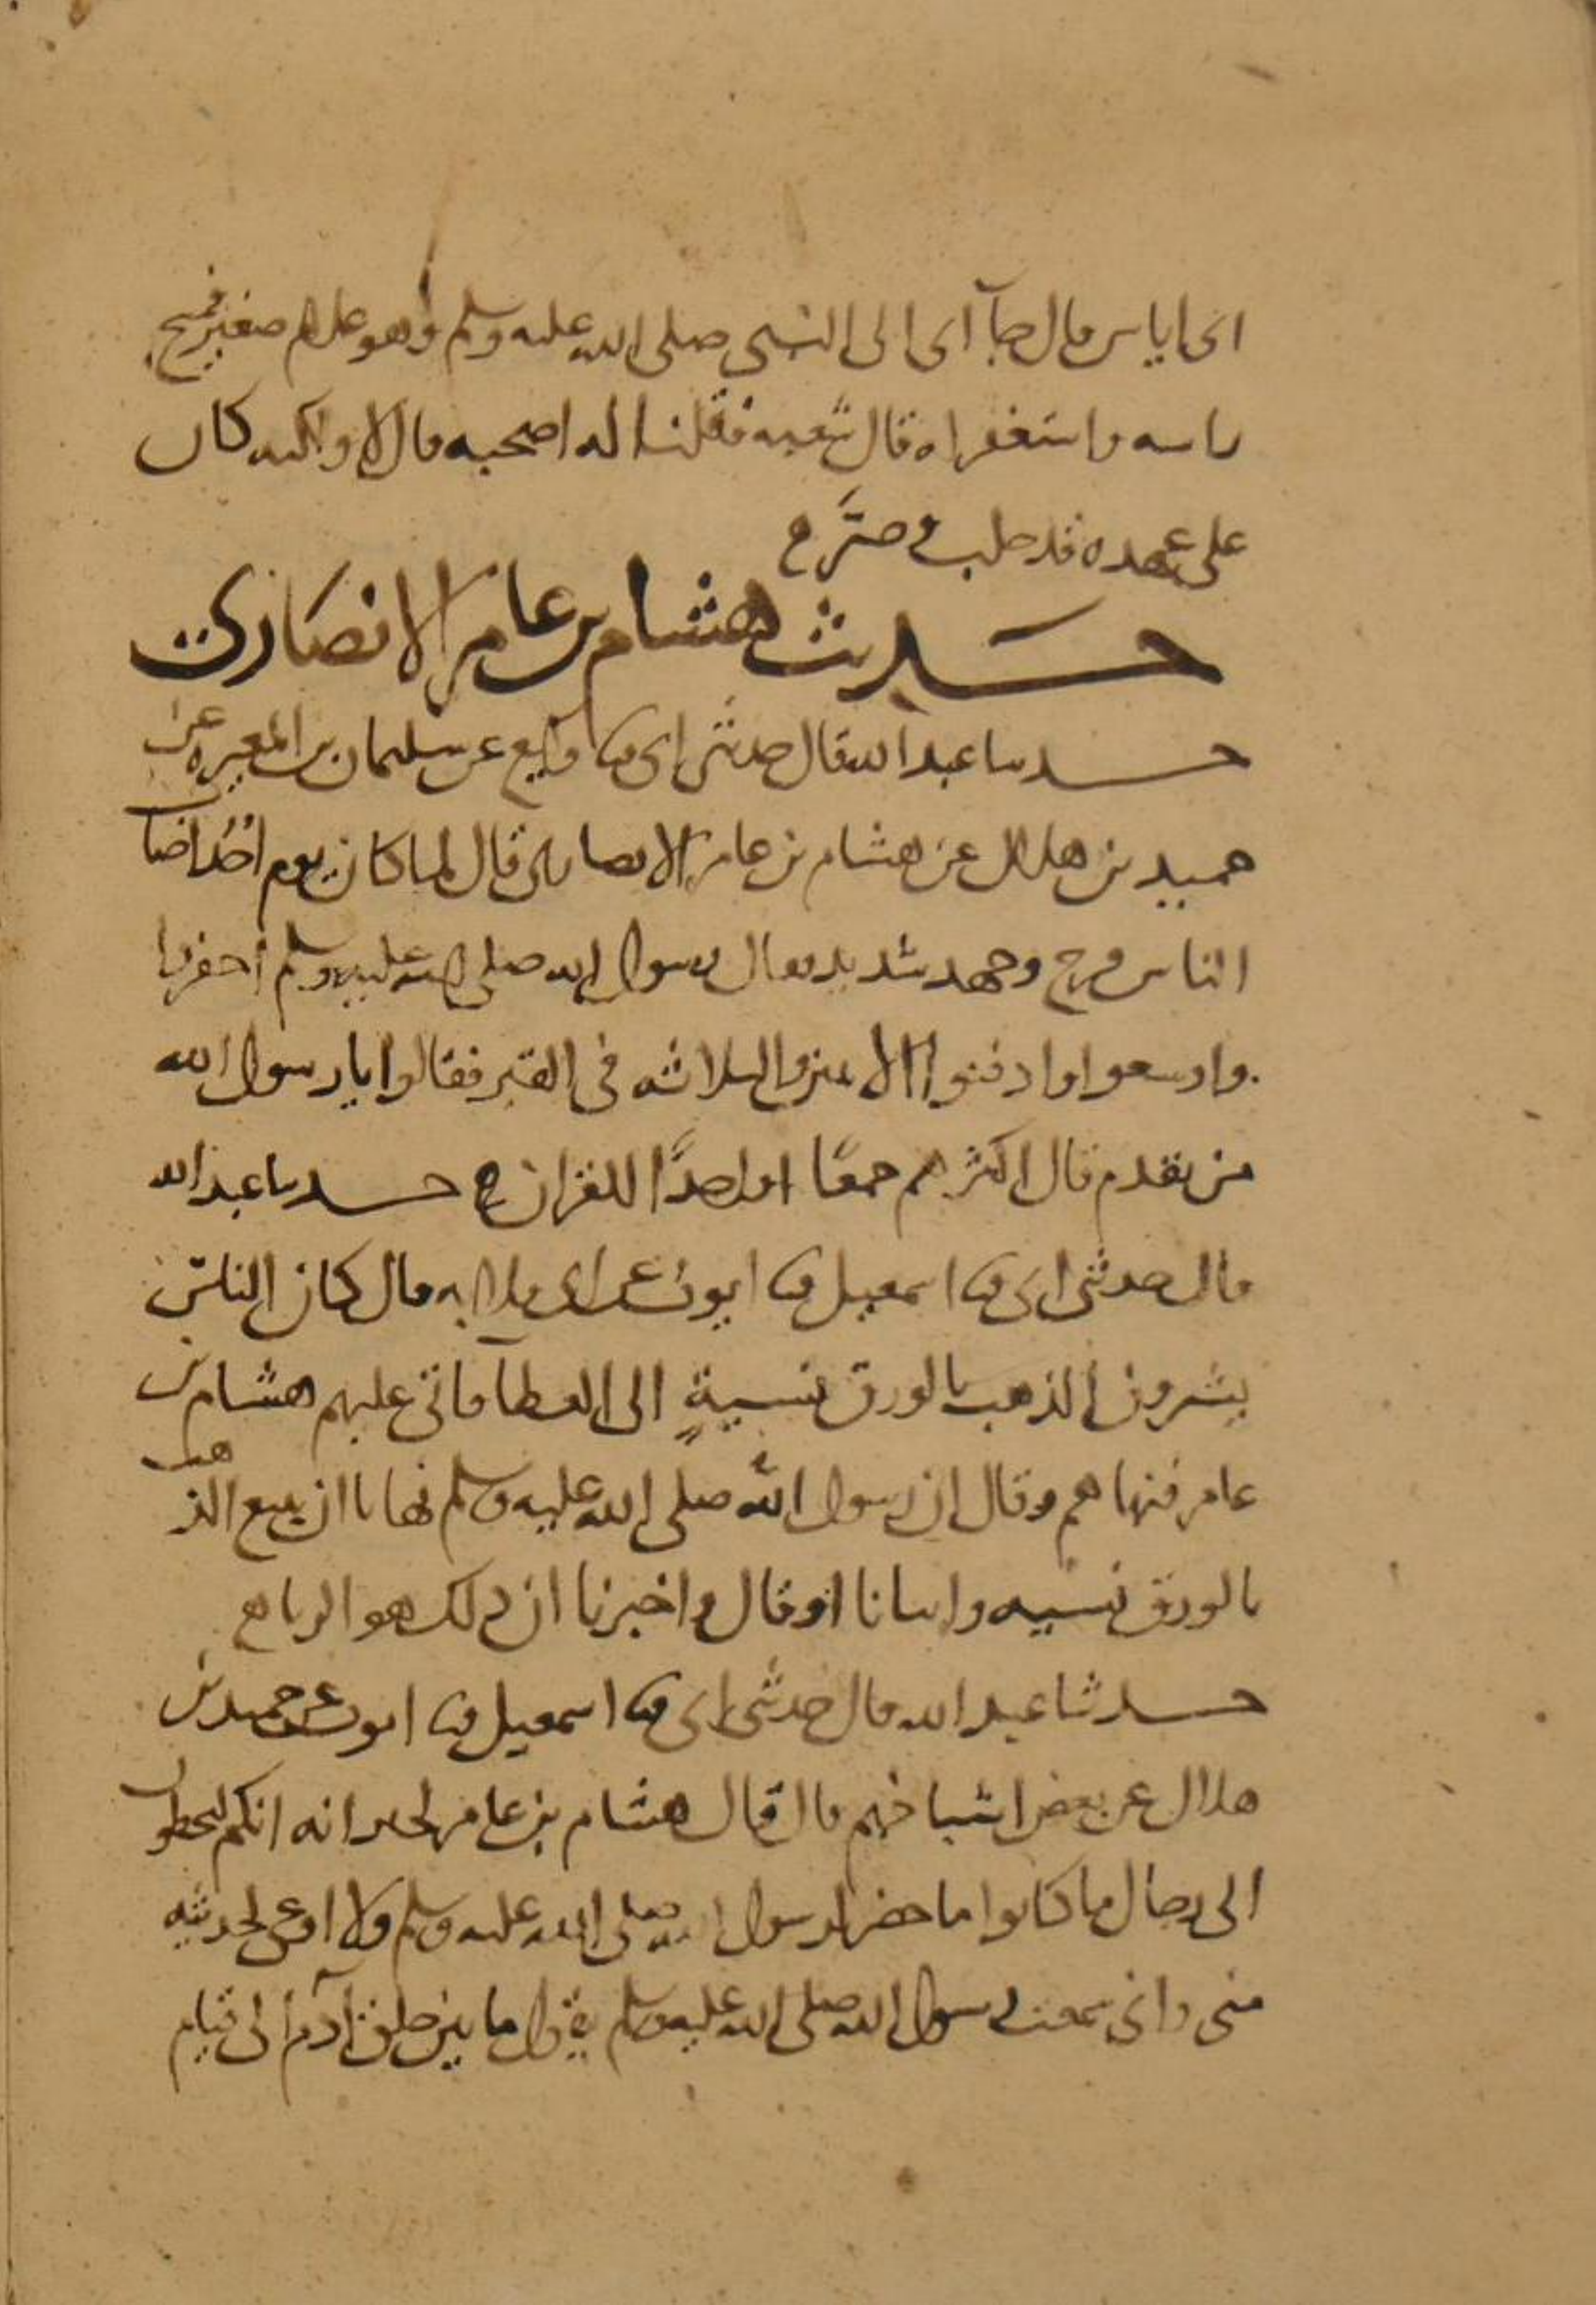 ابى اياس قال جآ ابى الى النبي صلى الله عليه وسلم وهو غلام صغير فمسح
راسه واستغفر له قال شعبه فقلنا له اصحبه قال لا ولكنه كان
على عهده قد حلب وصر
حديث هشام بن عامر الانصاري
حدثنا عبد الله قال حدثني ابى ثنا وكيع عن سليمان بن المغيره عن
حميد بن هلال عن هشام بن عامر الانصاري قال لما كان يوم احُد اصاب
الناس قرح وجهد شديد فقال رسول الله صلى الله عليه وسلم احفروا
واوسعوا وادفنوا الاثنين والثلاثه في القبر فقالوا يا رسول الله
من نقدم قال اكثرهم جمعًا واخذًا للقران حدثنا عبد الله
قال حدثني ابى ثنا اسمعيل ثنا ايوب عن ابى قلابه قال كان الناس
يشترون الذهب بالورق نسيةٍ الى العطا فاتى عليهم هشام بن
عامر فنهاهم وقال ان رسول الله صلى الله عليه وسلم نهانا ان نبيع الذهب
بالورق نسيه وانبانا او قال واخبرنا ان ذلك هو الربا
حدثنا عبد الله قال حدثني ابى ثنا اسمعيل ثنا ايوب عن حميد بن
هلال عن بعض اشياخهم قال قال هشام بن عامر لجيرانه انكم لتخطون
الى رجال ما كانوا باحضر لرسول الله صلى الله عليه وسلم ولا اوعى لحديثه
منى وانى سمعت رسول الله صلى الله عليه وسلم يقول ما بين خلق آدم الى قيام